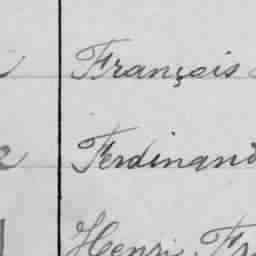 François
Ferdinand
Henri